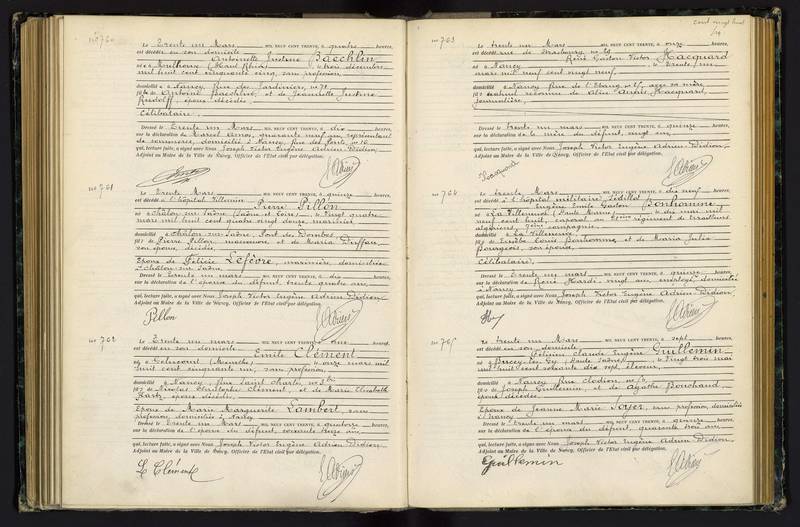 no 760
le Trente un Mars, MIL NEUF CENT TRENTE, à quatre heures,
est décédée en son domicile
Antoinette Justine Baechlin
née à Mulhouse (Haut Rhin) le trois décembre
mil huit cent cinquante cinq, sans profession,
domiciliée à Nancy, Rue des Jardiniers, no 71
fille de Antoine Baechlin, et de Jeannette Justine
Rudolff, époux décédés.
Célibataire.
Dressé le Trente un Mars, MIL NEUF CENT TRENTE, à dix heures,
sur la déclaration de Marcel Arnos, quarante neuf ans, représentant
de commerce, domicilié à Nancy, Rue des Ponts, no 16
qui, lecture faite, a signé avec Nous Joseph Victor Eugène Adrien Didion,
Adjoint au Maire de la Ville de Nancy, Officier de l'Etat civil par délégation.
no 761
le Trente un Mars, MIL NEUF CENT TRENTE, à quinze heures,
est décédé à l'hôpital Villemin
Pierre Pillon
né à Châlon sur Saône (Saône et Loire), le vingt quatre
mars mil huit cent quatre vingt douze, marinier
domicilié à Châlon sur Saône, Pont des Dombes
fils de Pierre Pillon, manoeuvre, et de Maria Duffau,
son épouse, décédée,
Epoux de Félicie Lefèvre, marinière, domiciliée
à Châlon sur Saône.
Dressé le Trente un mars, MIL NEUF CENT TRENTE, à dix heures,
sur la déclaration de l'épouse du défunt, trente quatre ans,
qui, lecture faite, a signé avec Nous Joseph Victor Eugène Adrien Didion
Adjoint au Maire de la Ville de Nancy, Officier de l'Etat civil par délégation.
Pillon
no 762
le Trente un mars, MIL NEUF CENT TRENTE, à une heures,
est décédé en son domicile
Emile Clément
né à Gelucourt (Meurthe) le onze mars mil
huit cent cinquante un, sans profession,
domicilié à Nancy, Rue Saint Charles, no 3 bis
fils de Nicolas Christophe Clément, et de Marie Elisabeth
Kartz, époux décédés,
Epoux de Marie Marguerite Lambert, sans
profession, domiciliée à Nancy.
Dressé le Trente un Mars, MIL NEUF CENT TRENTE, à quatorze heures,
sur la déclaration de l'épouse du défunt, soixante treize ans
qui, lecture faite, a signé avec Nous Joseph Victor Eugène Adrien Didion
Adjoint au Maire de la Ville de Nancy, Officier de l'Etat civil par délégation.
L Clément
cent vingt huit
no 763
le trente un Mars, MIL NEUF CENT TRENTE, à onze heures,
est décédé rue de Strasbourg no 29
René Gaston Victor Hacquard
né à Nancy le Trente un
mars mil neuf cent vingt neuf,
domicilié à Nancy rue de l'Etang no 25, avec sa mère,
fils naturel reconnu de Aline Anaïs Hacquard,
journalière,
Dressé le Trente un mars, MIL NEUF CENT TRENTE, à quinze heures,
sur la déclaration de la mère du défunt, vingt ans,
qui, lecture faite, a signé avec Nous Joseph Victor Eugène Adrien Didion,
Adjoint au Maire de la Ville de Nancy, Officier de l'Etat civil par délégation.
no 764
le trente Mars, MIL NEUF CENT TRENTE, à dix neuf heures,
est décédé à l'hôpital militaire Sédillot
Eugène Emile Gaston Bonhomme
né à La Villeneuve (Haute Marne) le dix mai mil
neuf cent huit, caporal au régiment de tirailleurs
algériens, compagnie.
domicilié à La Villeneuve
fils de Eusèbe Louis Bonhomme, et de Maria Julie
Bourgeois, son épouse,
Célibataire.
Dressé le Trente un mars, MIL NEUF CENT TRENTE, à quinze heures,
sur la déclaration de René Hardi, vingt ans, employé, domicilié
à Nancy
qui, lecture faite, a signé avec Nous Joseph Victor Eugène Adrien Didion,
Adjoint au Maire de la Ville de Nancy, Officier de l'Etat civil par délégation.
no 765
le trente un Mars, MIL NEUF CENT TRENTE, à sept heures,
est décédé en son domicile
Félicien Claude Eugène Guillemin
né à Bucey-lès-Gy (Haute Saône), le vingt trois mai
mil huit cent soixante dix sept, éleveur,
domicilié à Nancy Rue Clodion, no 6,
fils de Joseph Guillemin, et de Agathe Bouchaud,
époux décédés.
Epoux de Jeanne Marie Soyer, sans profession, domiciliée
à Nancy.
Dressé le Trente un mars, MIL NEUF CENT TRENTE, à quinze heures,
sur la déclaration de l'épouse du défunt, quarante trois ans
qui, lecture faite, a signé avec Nous Joseph Victor Eugène Adrien Didion,
Adjoint au Maire de la Ville de Nancy, Officier de l'Etat civil par délégation.
Guillemin